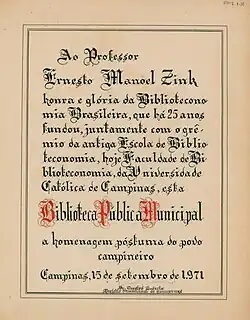 Ao Professor
Ernesto Manoel Zink
honra e glória da Bibliotecono-
mia Brasileira, que há 25 anos
fundou, juntamente com o grê-
mio da antiga Escola de Biblio-
teconomia, hoje Faculdade de Bi-
blioteconomia, da Universidade
Católica de Campinas, esta
Biblioteca Pública Municipal
a homenagem póstuma do povo
campineiro
Campinas, 15 de setembro de 1971